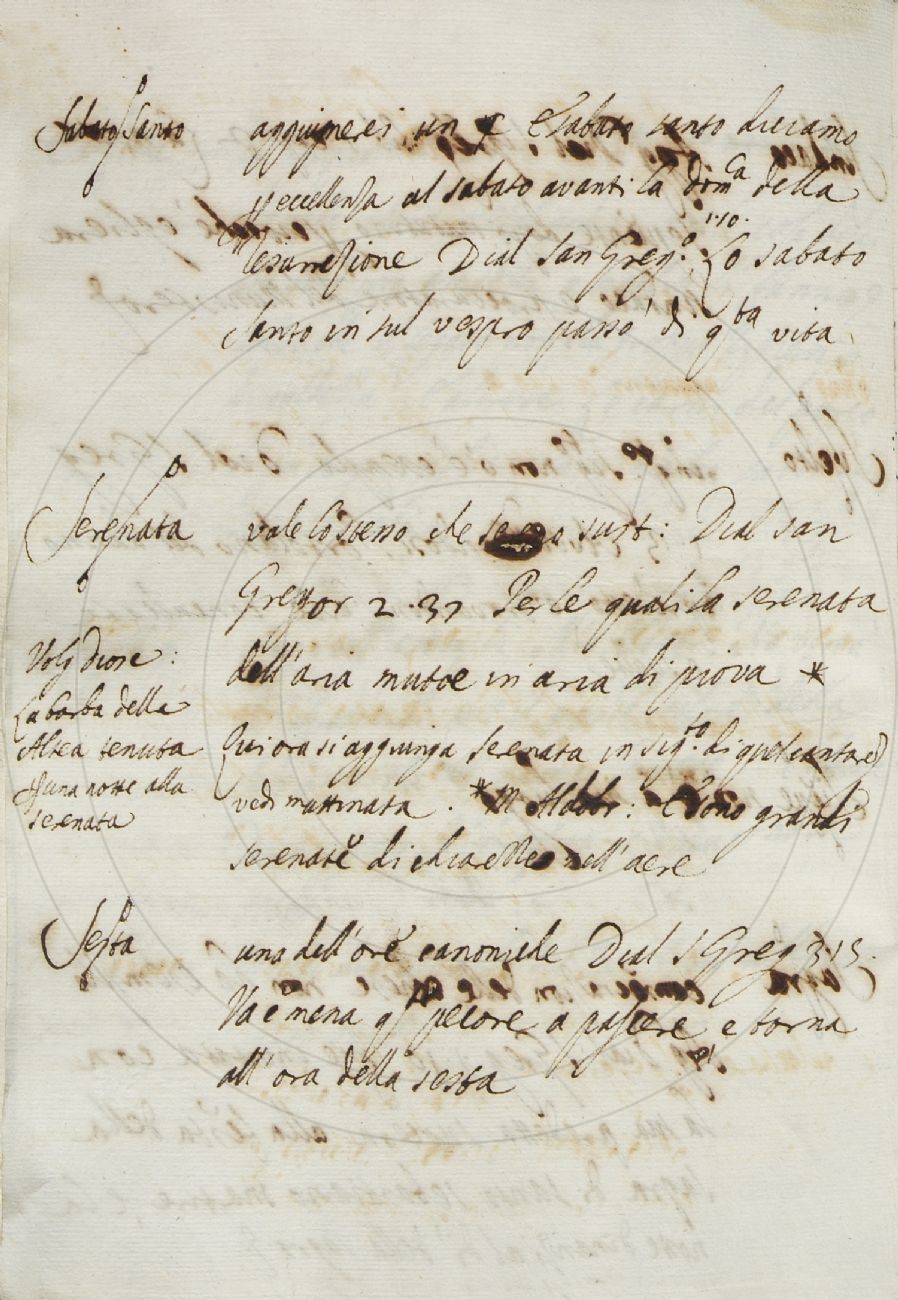 Sabato Santo
aggiugnerei un § E Sabato santo diciamo
p eccellenza al sabato avanti la dom.ca della
resurrezione Dial San Greg.o 1.10. Lo sabato
santo in sul vespro passò di q.ta vita
Serenata
vale lo stesso che sust: Dial san
Gregor 2.37 Per le quali la serenata
dell'aria mutoe in aria di piova *
Qui ora si aggiunga serenata in sig.to di quel cantare
vedi mattinata. * M Aldobr: E sono grandi
serenate di chiarezze nell'aere
Volg Diosc:
La barba della
Altea tenuta
p una notte alla
serenata
Sesta
una dell'ore canoniche Dial S Greg 3.15.
Va e mena q. pecore a pascere e torna
all'ora della sesta